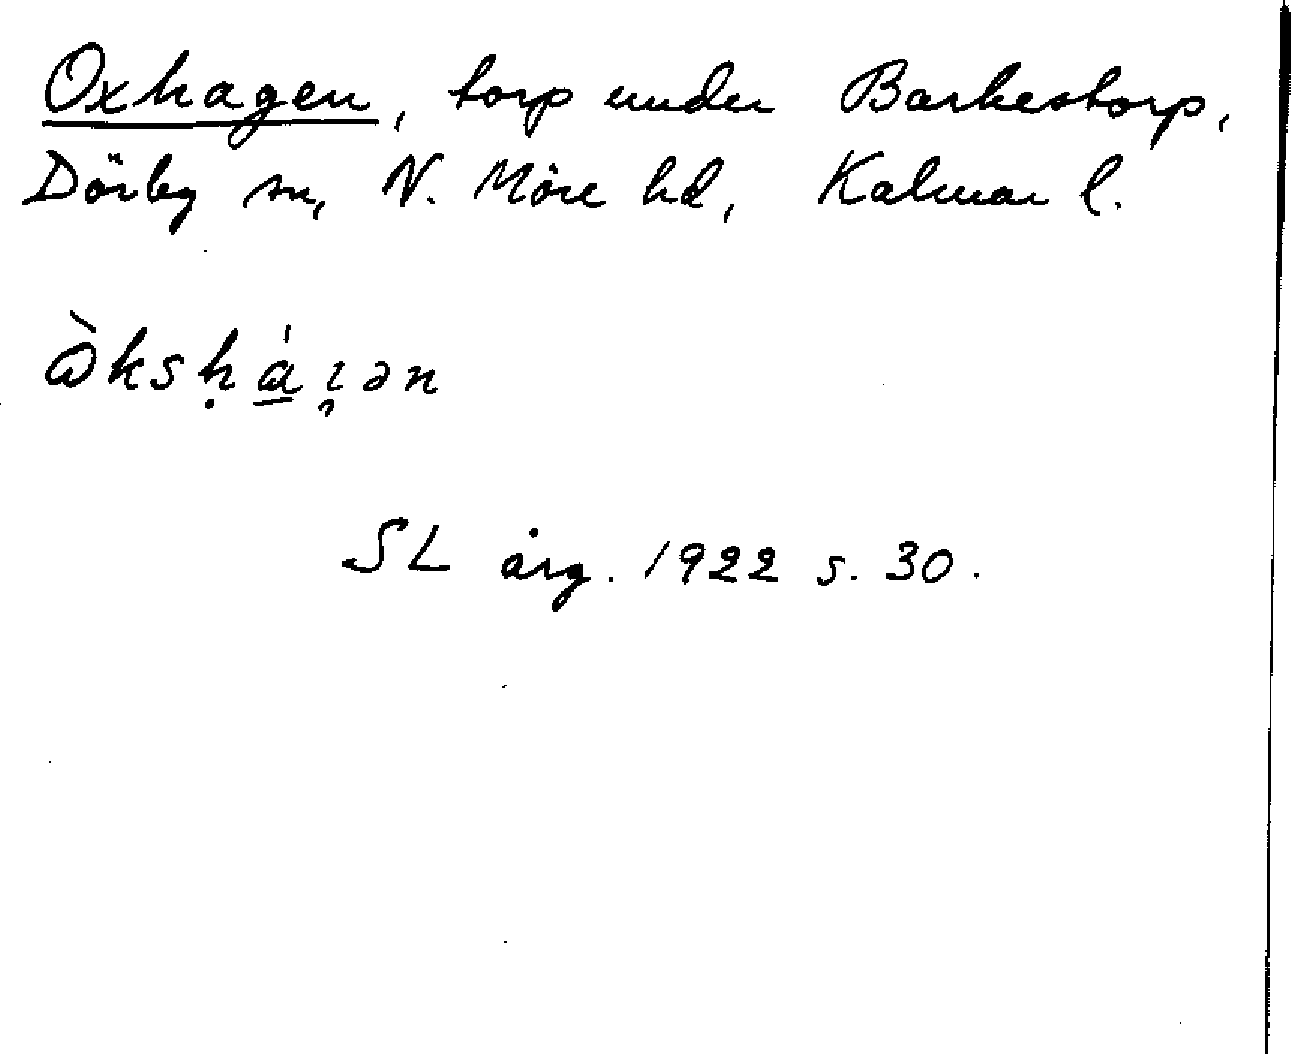 Oxhagen, torp under Barkestorp,
Dörby sn, N. Möre hd, Kalmar l.
SL årg. 1922 s. 30.